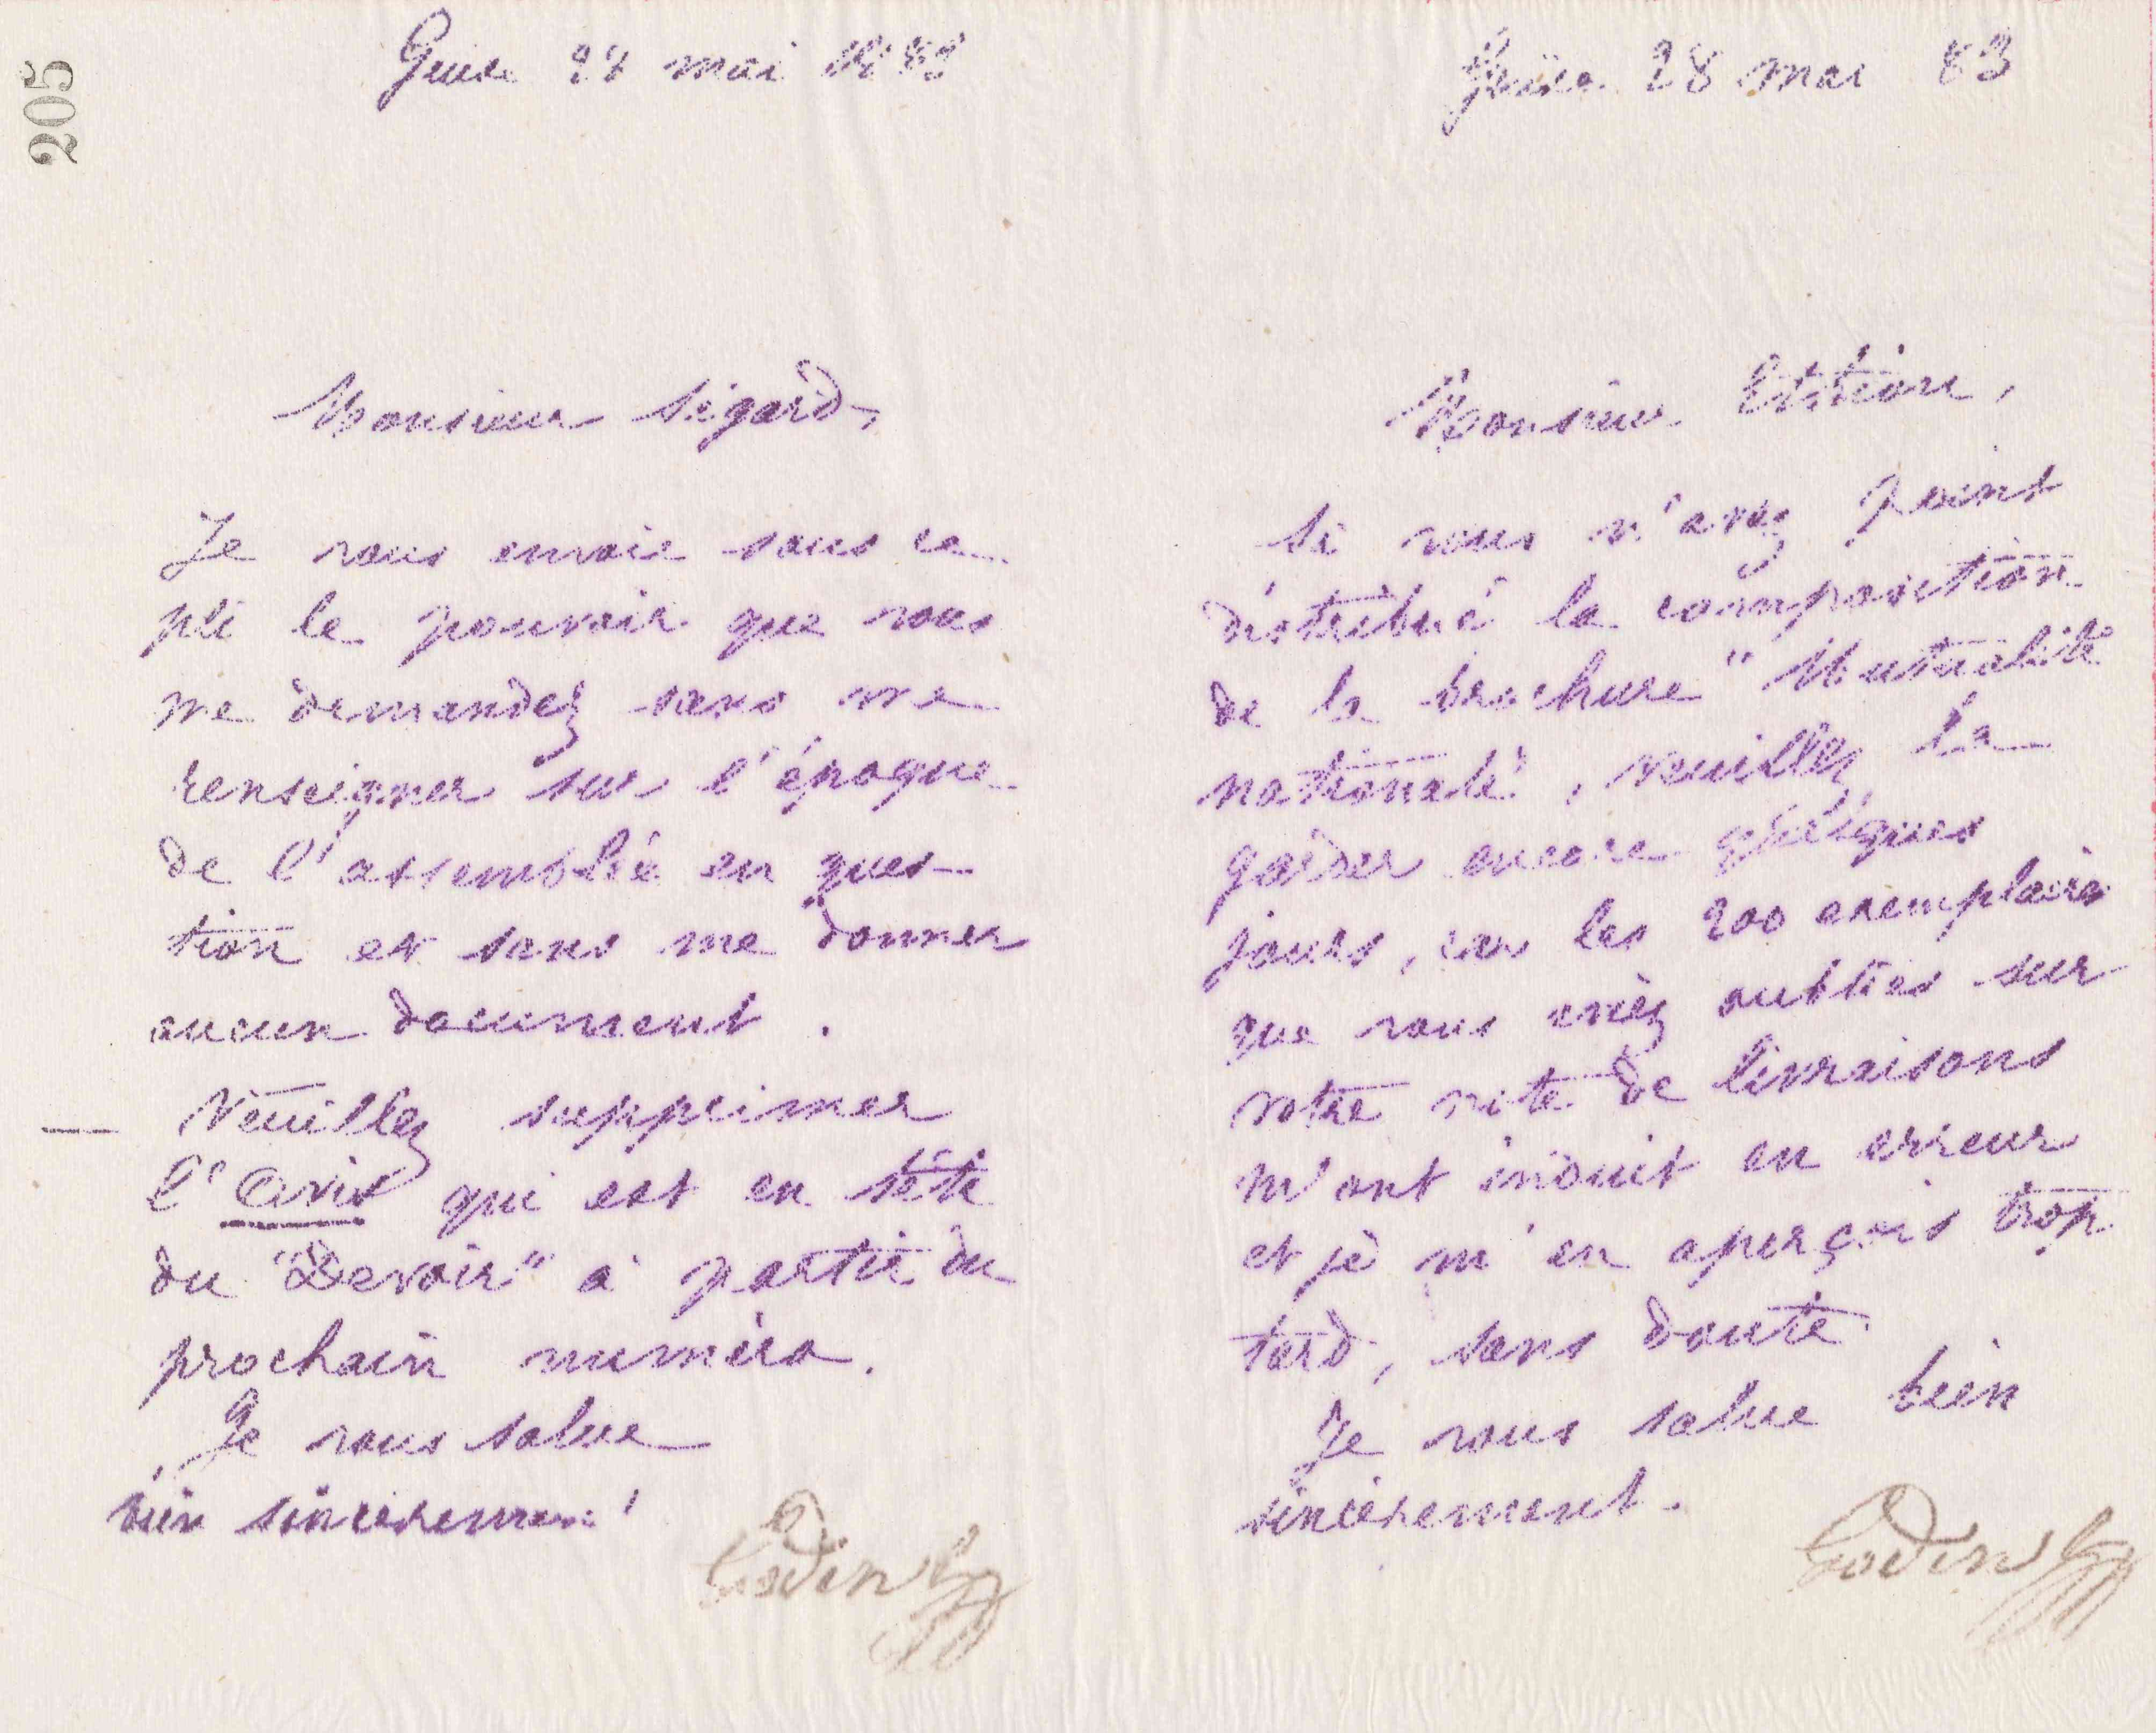 205
Guise 27 mai 1883
Monsieur Sigard,
Je vous envoie sous ce
pli le pouvoir que vous
me demandez sans me
renseigner sur l'époque
de l'assemblée en ques-
tion et sans me donner
aucun document.
— Veuillez supprimer
l'Avis qui est en tête
du "Devoir" à partir du
prochain numéro.
Je vous salue
bien sincèrement
Godin
Guise 28 mai 83
Monsieur
Si vous n'avez point
distribué la composition
de la brochure "Mutualité
nationale", veuillez la
garder encore quelques
jours, car les 200 exemplaires
que vous aviez oubliés sur
votre note de livraisons
m'ont induit en erreur
et je m'en aperçois trop
tard, sans doute.
Je vous salue bien
sincèrement.
Godin